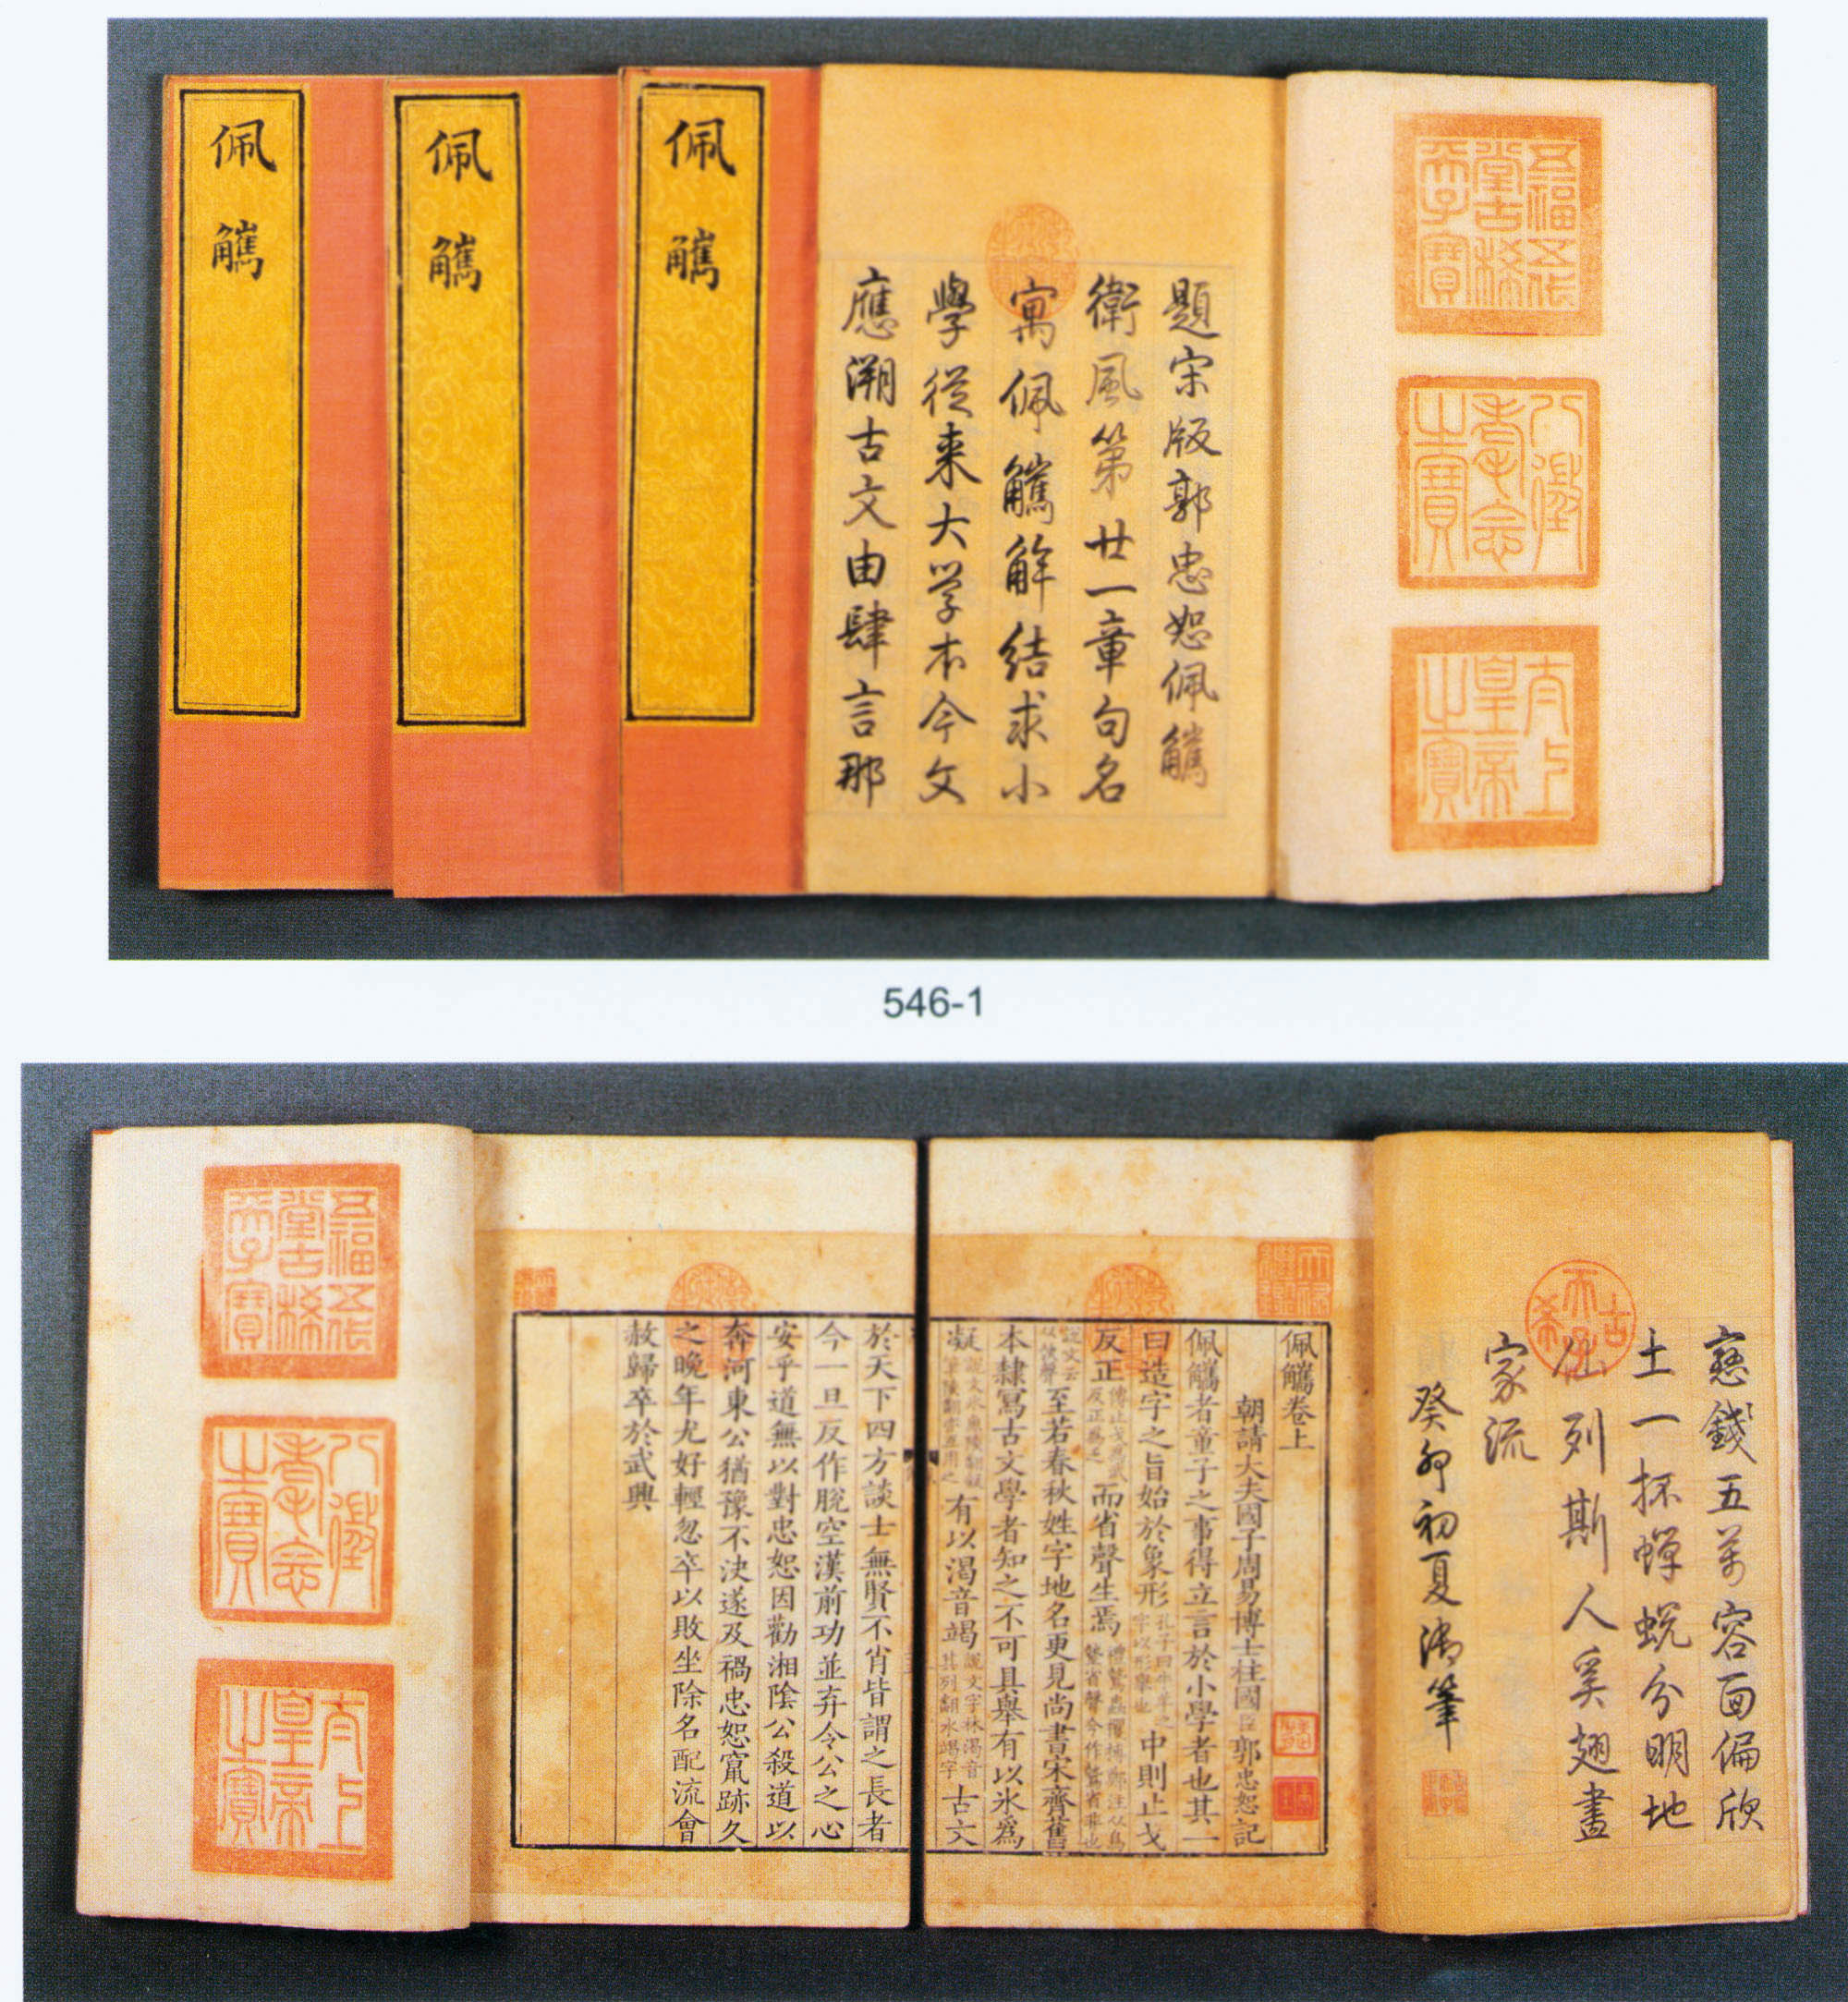 佩觿
佩觿
佩觿
題宋版郭忠恕佩觿
衛風第廿一章句名
寓佩觿解結求小
學從来大學本今文
應溯古文由肆言那
五福五代
堂古稀
天子寶
八徵
耄念
之寶
太上
皇帝
之寶
546-1
慙錢五萬容面偏欣
土一抔蟬蛻分明地
仙列斯人奚翅畫
家流
癸卯初夏御筆
古稀天子
天祿繼鑑
佩觿卷上
朝請大夫國子周易博士柱國臣郭忠恕記
佩觿者童子之事得立言於小學者也其一
曰造字之旨始於象形中則止戈
反正而省聲生焉
至若春秋姓字地名更見尚書宋齊舊
本隸寫古文學者知之不可具舉有以氷爲
凝有以渴音竭古文
於天下四方談士無賢不肖皆謂之長者
今一旦反作脫空漢前功並弃令公之心
安乎道無以對忠恕因勸湘陰公殺道以
奔河東公猶豫不決遂及禍忠恕竄跡久
之晚年尤好輕忽卒以敗坐除名配流會
赦歸卒於武興
五福五代
堂古稀
天子寶
八徵
耄念
之寶
太上
皇帝
之寶